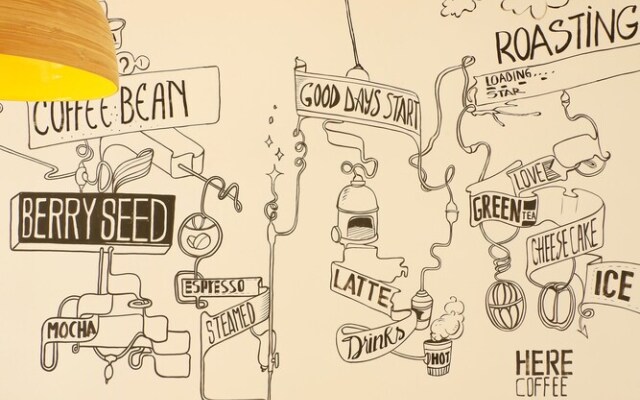 COFFEE BEAN
BERRY SEED
MOCHA
ESPRESSO
STEAMED
GOOD DAYS START
LATTE
Drinks
HOT
ROASTING
LOADING....
STAR
LOVE
GREEN TEA
CHEESE CAKE
ICE
HERE
COFFEE